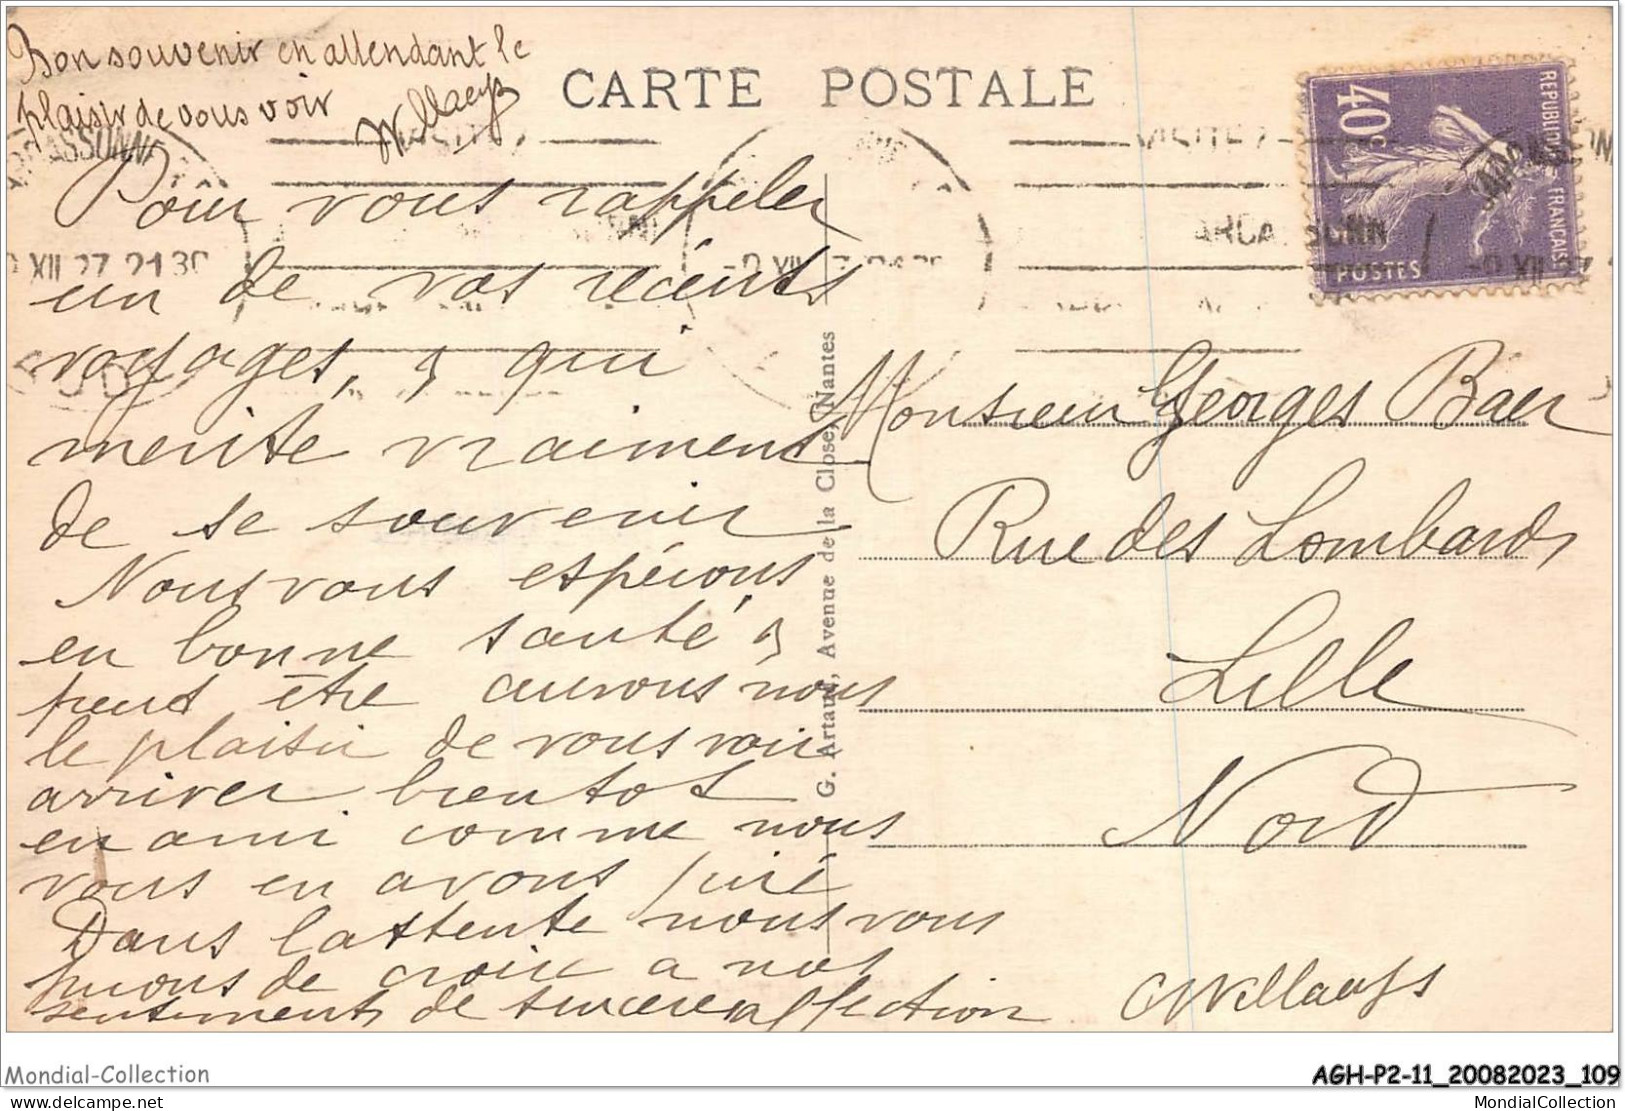 Bon souvenir en attendant le
plaisir de vous voir
CARTE POSTALE
40c
REPUBLIQUE FRANCAISE
POSTES
CARCASSONNE
XII 27 21 30
Pour vous rappeler
un de vos récents
voyages, & qui
merite vraiment
de se souvenir
Nous vous espérons
en bonne santé &
peut être aurons nous
le plaisir de vous voir
arriver bientot
en ami comme nous
vous en avons prié
Dans l'attente nous vous
prions de croire a nos
sentiments de sincere affection
G. Artaud, Avenue de la Close, Nantes
Monsieur Georges Baer
Rue des Lombards
Lille
Nord
Mondial-Collection
AGH-P2-11_20082023_109
www.delcampe.net
MondialCollection